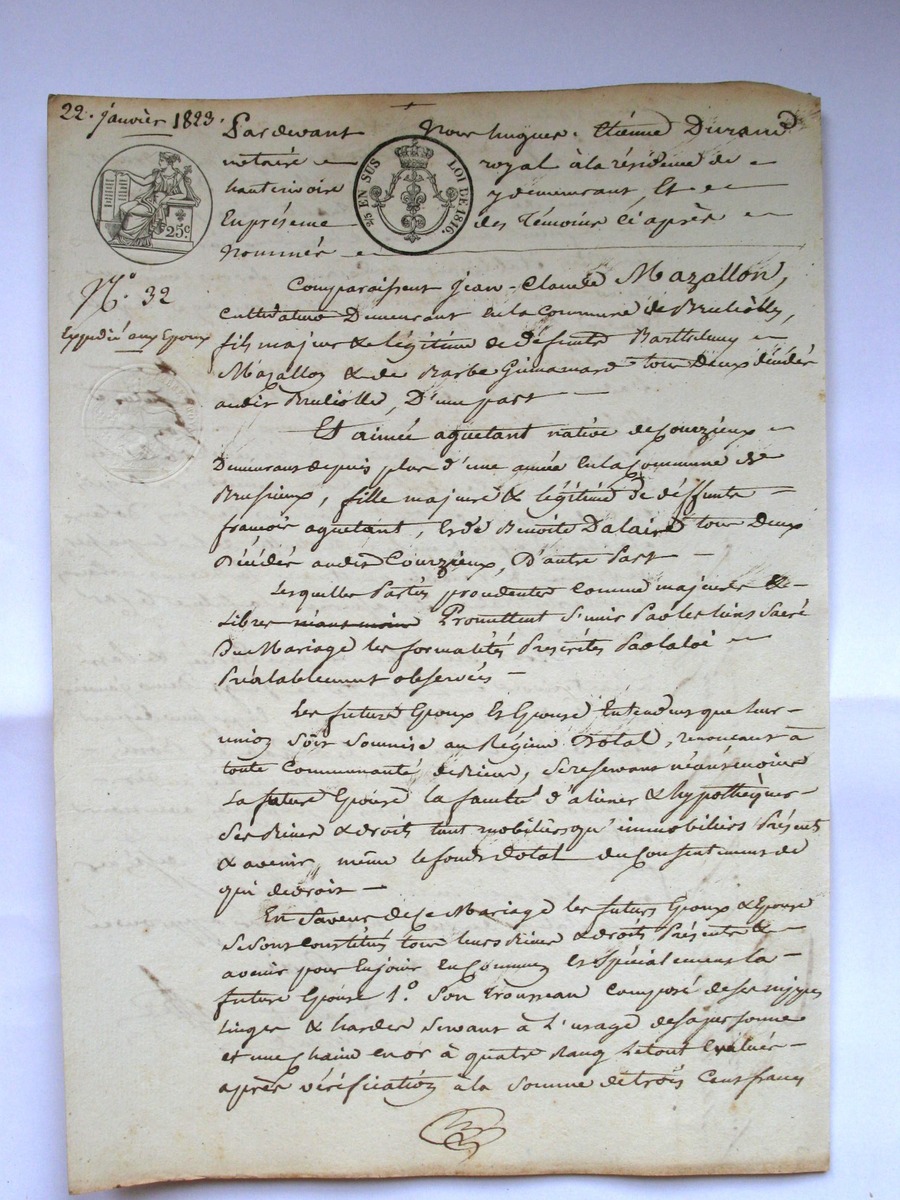 22. janvier 1823.
Pardevant Nous hugues. Etienne Durand
notaire royal à la résidence de
hauterivoire y demeurant, Et
En présence des Témoins ci après
nommés
25c
2/5 EN SUS LOI DE 1816.
N.º 32
Expédié aux Epoux
Comparaissent jean-Claude Mazallon,
Cultivateur Demeurant en la Commune de Brulioles,
fils majeur & légitime de défunts Barthelemy
Mazallon & de Barbe tous Deux décédés
audit Bruliolle, D'une part
Et aimée aguetant native de Courzieux
Demeurant depuis plus d'une année en la Commune de
Brussieux, fille majeure & légitime de deffunts
françois aguetant, et de Benoite Dalaire tous Deux
Décédés audit Courzieux, D'autre Part
Lesquelles Parties procédantes comme majeures &
Libres néanmoins Promettent S'unir Par les liens Sacré
Du Mariage les formalités Préscrites Par la loi
Préalablement observées
Les futurs Epoux Et Epouse Entendent que leur
union Soit Soumise au Régime Dotal, renoncant à
toute Communauté de Biens, Se reservant néanmoins
La future Epouse la faculté d'aliéner & hypothèquer
Ses Biens & droits tant mobiliers qu'immobiliers Présents
& avenir, même le fonds dotal du Consentement de
qui de droit
En faveur de Ce Mariage les futurs Epoux & Epouse
Se sont constitués tous leurs Biens & droits Présents &
avenir pour En jouir En Commun Et Spécialement la
future Epouse 1.º Son Trousseau Composé de ses nippes
Linges & hardes Servant à L'usage de sa personne
et une chaine en or à quatre Rang Le tout Evalué
après vérification à la Somme de trois Cent francs